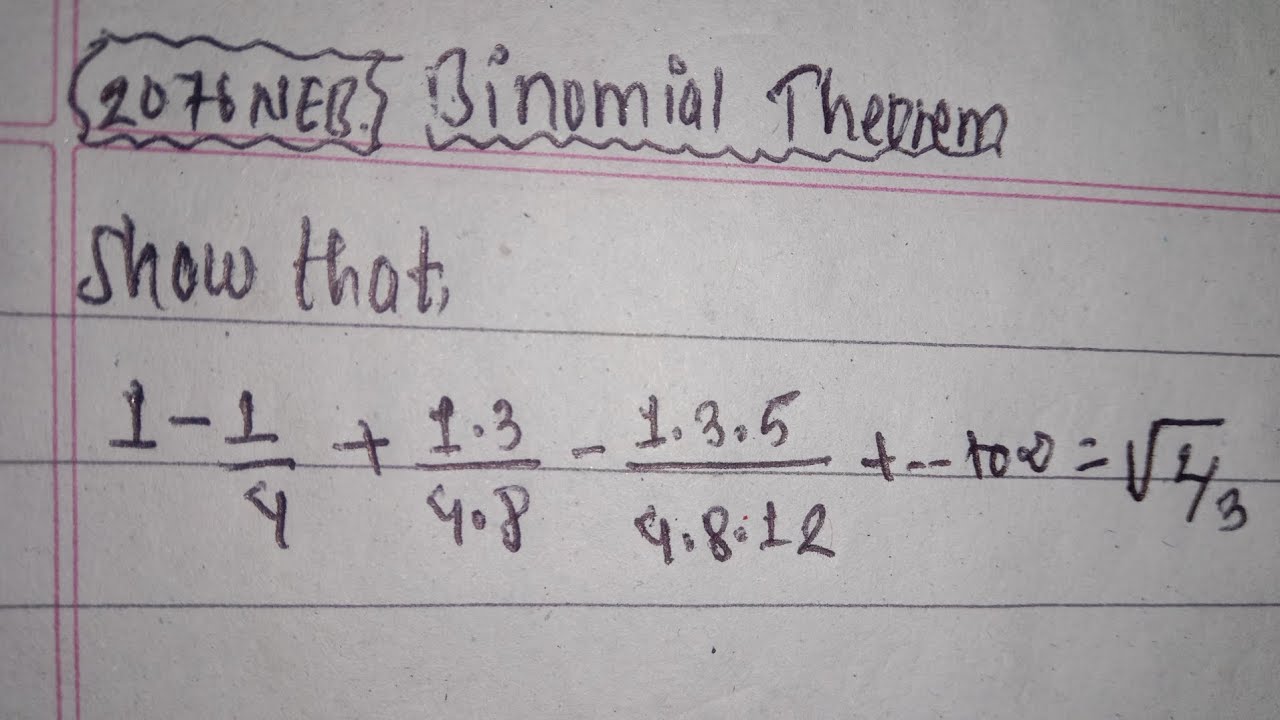 2076 NEB. Binomial Theorem
Show that,
1 - 1/4 + 1.3/4.8 - 1.3.5/4.8.12 + --- to ∞ = √2/3